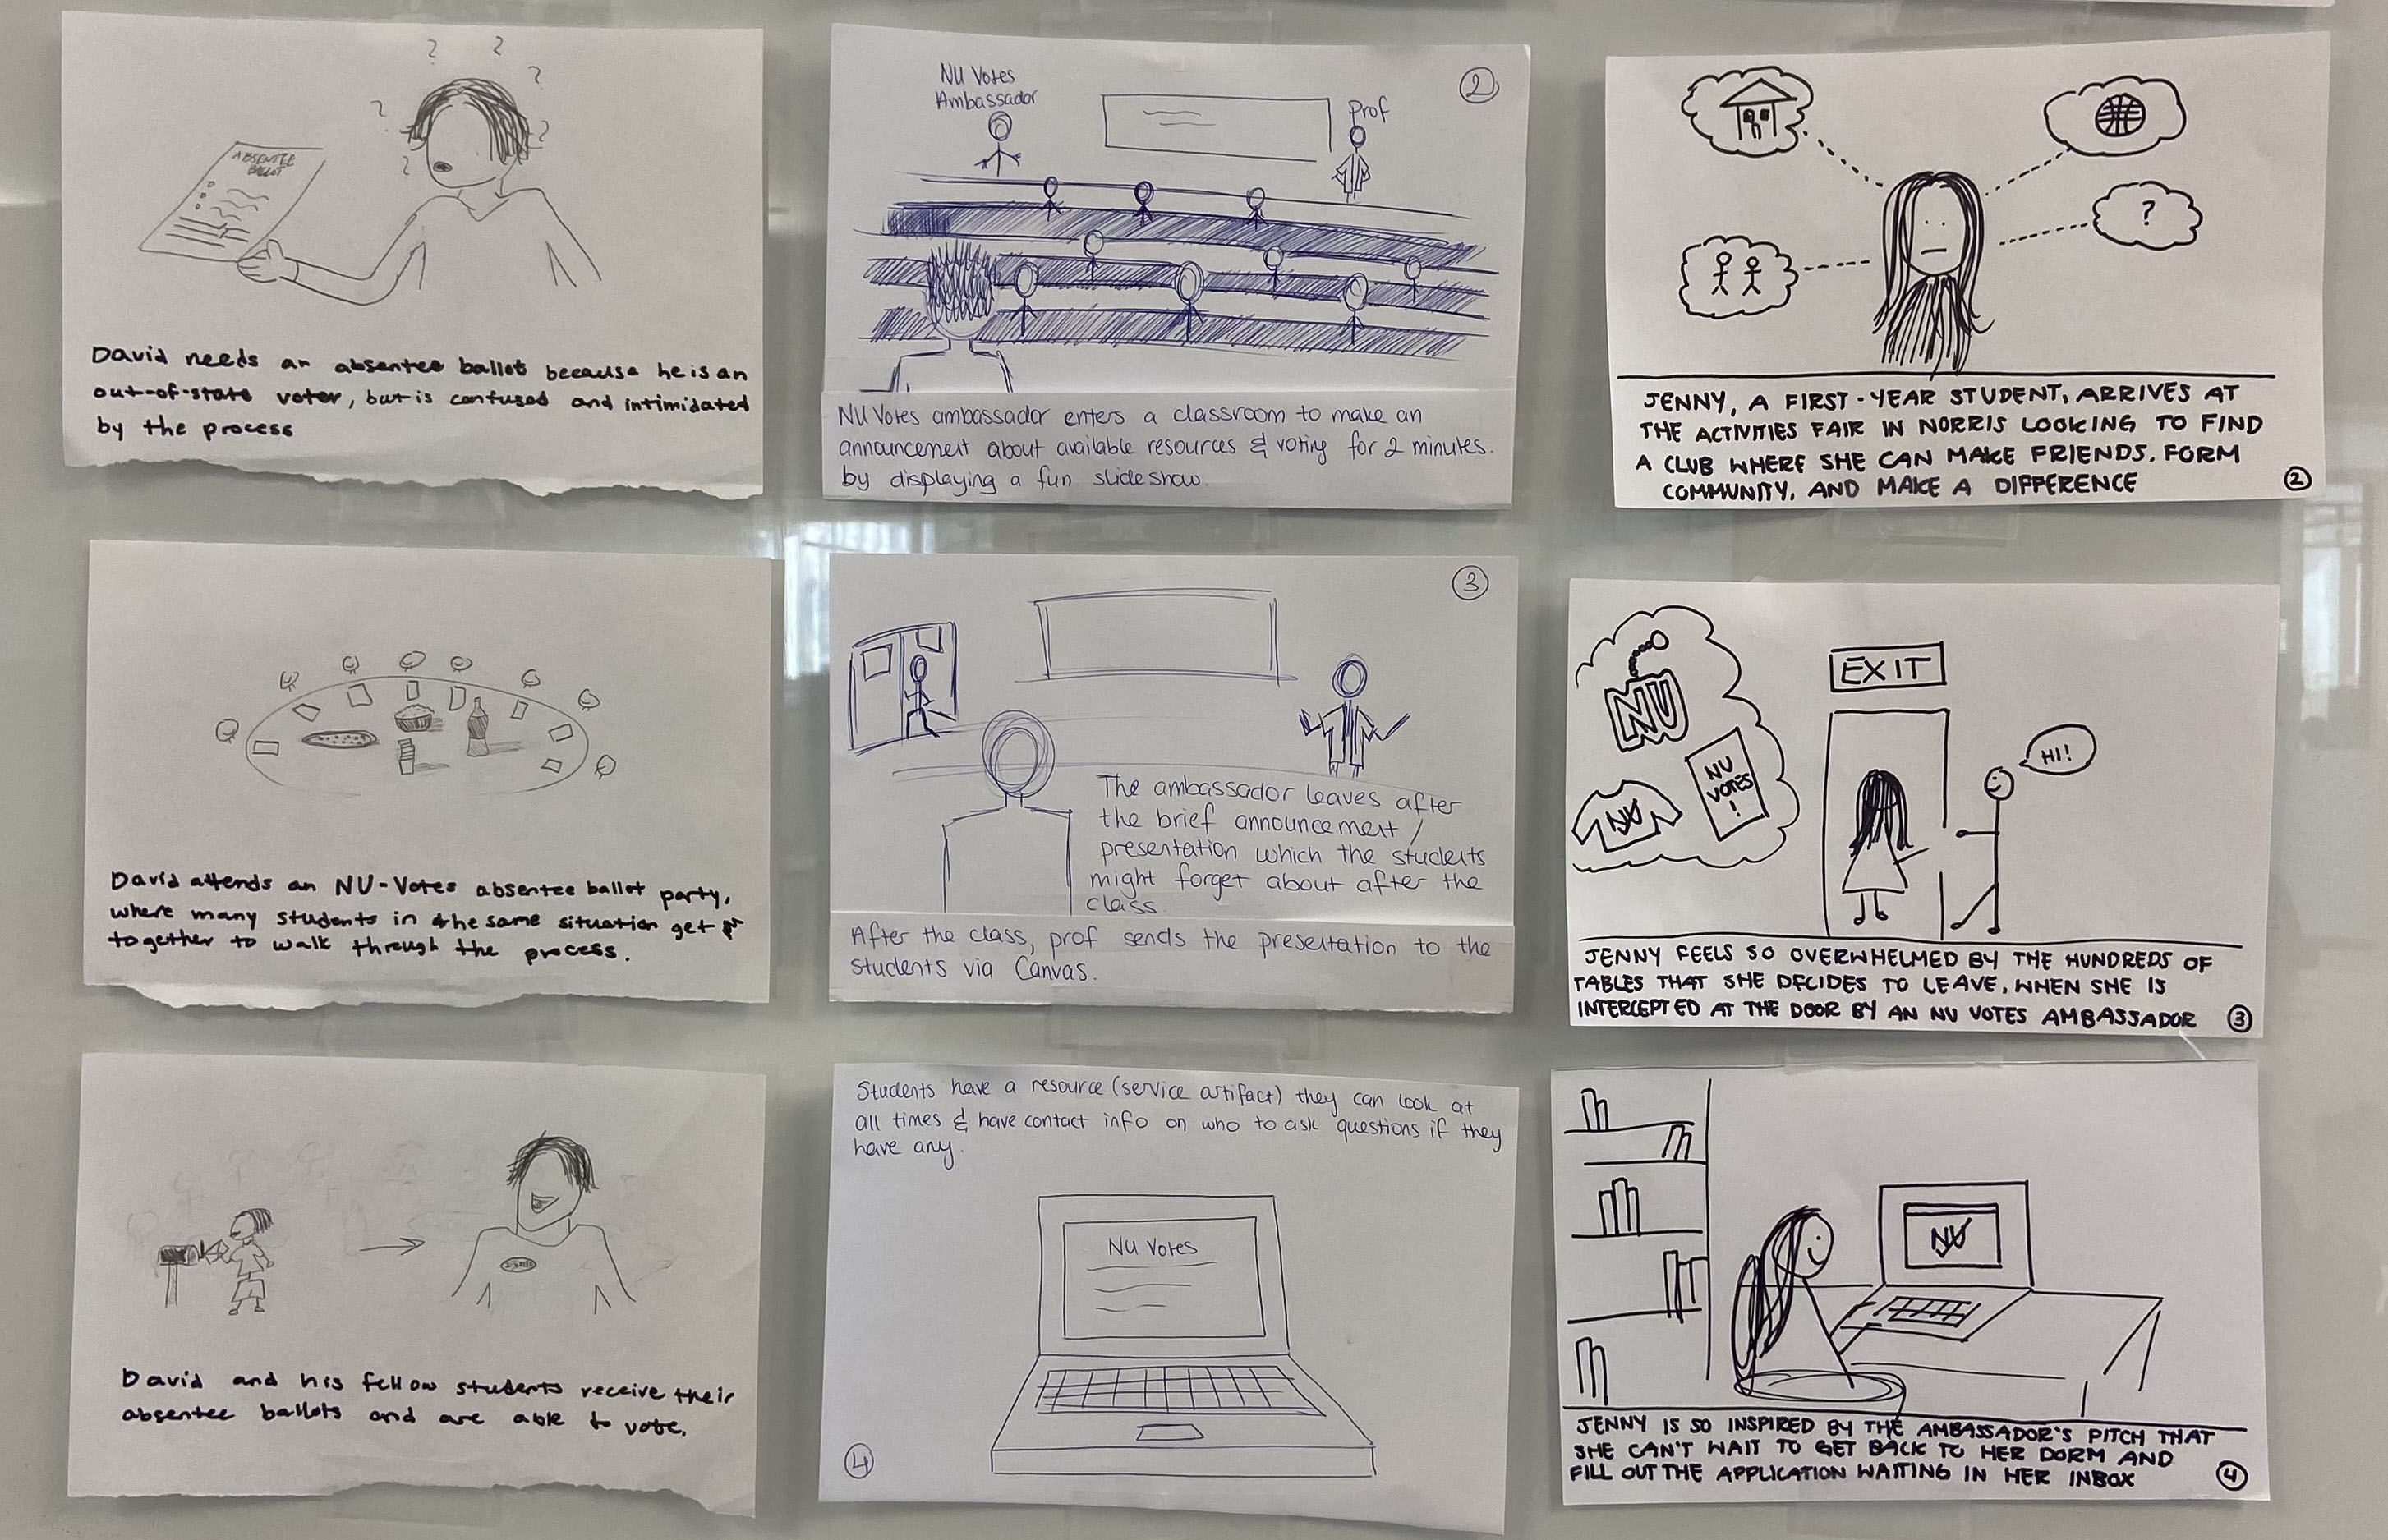 ? ? ? ? ? ?
ABSENTEE
BALLOT
David needs an absentee ballot because he is an
out-of-state voter, but is confused and intimidated
by the process
David attends an NU-Votes absentee ballot party,
where many students in the same situation get
together to walk through the process.
David and his fellow students receive their
absentee ballots and are able to vote.
2
NU Votes
Ambassador
Prof
NU Votes ambassador enters a classroom to make an
announcement about available resources & voting for 2 minutes.
by displaying a fun slideshow.
3
The ambassador leaves after
the brief announcement /
presentation which the students
might forget about after the
class.
After the class, prof sends the presentation to the
students via Canvas.
Students have a resource (service artifact) they can look at
all times & have contact info on who to ask questions if they
have any.
NU Votes
4
?
JENNY, A FIRST-YEAR STUDENT, ARRIVES AT
THE ACTIVITIES FAIR IN NORRIS LOOKING TO FIND
A CLUB WHERE SHE CAN MAKE FRIENDS. FORM
COMMUNITY, AND MAKE A DIFFERENCE
2
NU
NU
VOTES
!
NV
EXIT
HI!
JENNY FEELS SO OVERWHELMED BY THE HUNDREDS OF
TABLES THAT SHE DECIDES TO LEAVE, WHEN SHE IS
INTERCEPTED AT THE DOOR BY AN NU VOTES AMBASSADOR
3
NV
JENNY IS SO INSPIRED BY THE AMBASSADOR'S PITCH THAT
SHE CAN'T WAIT TO GET BACK TO HER DORM AND
FILL OUT THE APPLICATION WAITING IN HER INBOX
4